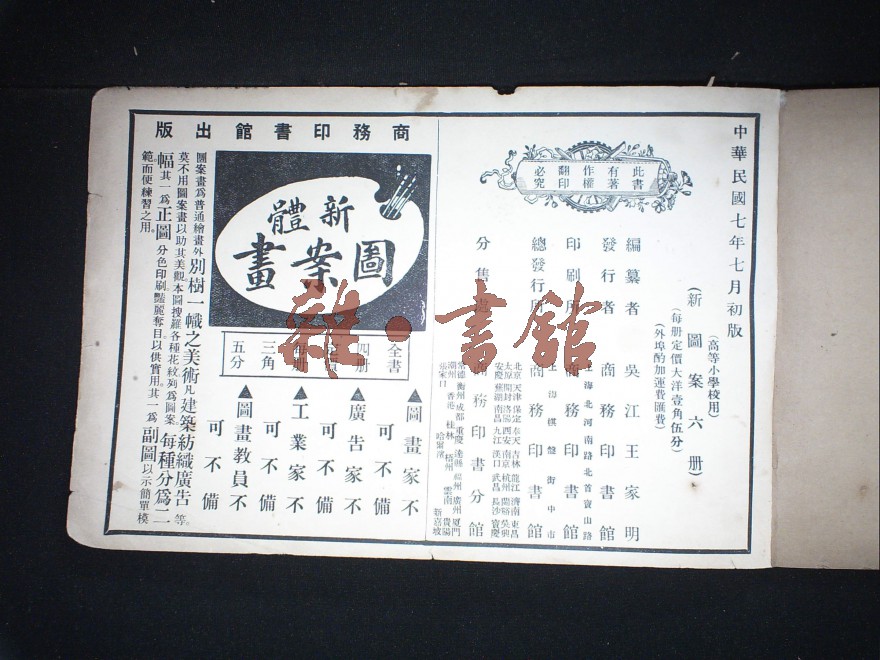 中華民國七年七月初版
(高等小學校用)
(新圖案六册)
(每册定價大洋壹角伍分)
(外埠酌加運費匯費)
此書
有著
作權
翻印
必究
編纂者 吳江王家明
發行者 商務印書館
上海北河南路北首寶山路
印刷所 商務印書館
上海棋盤街中市
總發行所 商務印書館
分售處 商務印書分館
北京 天津 保定 奉天 吉林 龍江 濟南 東昌
太原 開封 洛陽 西安 南京 杭州 蘭谿 吳興
安慶 蕪湖 南昌 九江 漢口 武昌 長沙 寶慶
常德 衡州 成都 重慶 達縣 福州 廣州 廈門
潮州 香港 桂林 梧州 雲南 貴陽
張家口 哈爾濱 新嘉坡
商務印書館出版
新體
圖案畫
全書
四册
每册
三角
五分
▲圖畫家不
可不備
▲廣告家不
可不備
▲工業家不
可不備
▲圖畫教員不
可不備
圖案畫爲普通繪畫外別樹一幟之美術凡建築紡織廣告等。
莫不用圖案畫以助其美觀本圖搜羅各種花紋列爲圖案。每種分爲二
幅其一爲正圖分色印刷艷麗奪目以供實用。其一爲副圖以示簡單模
範而便練習之用。
雜·書館